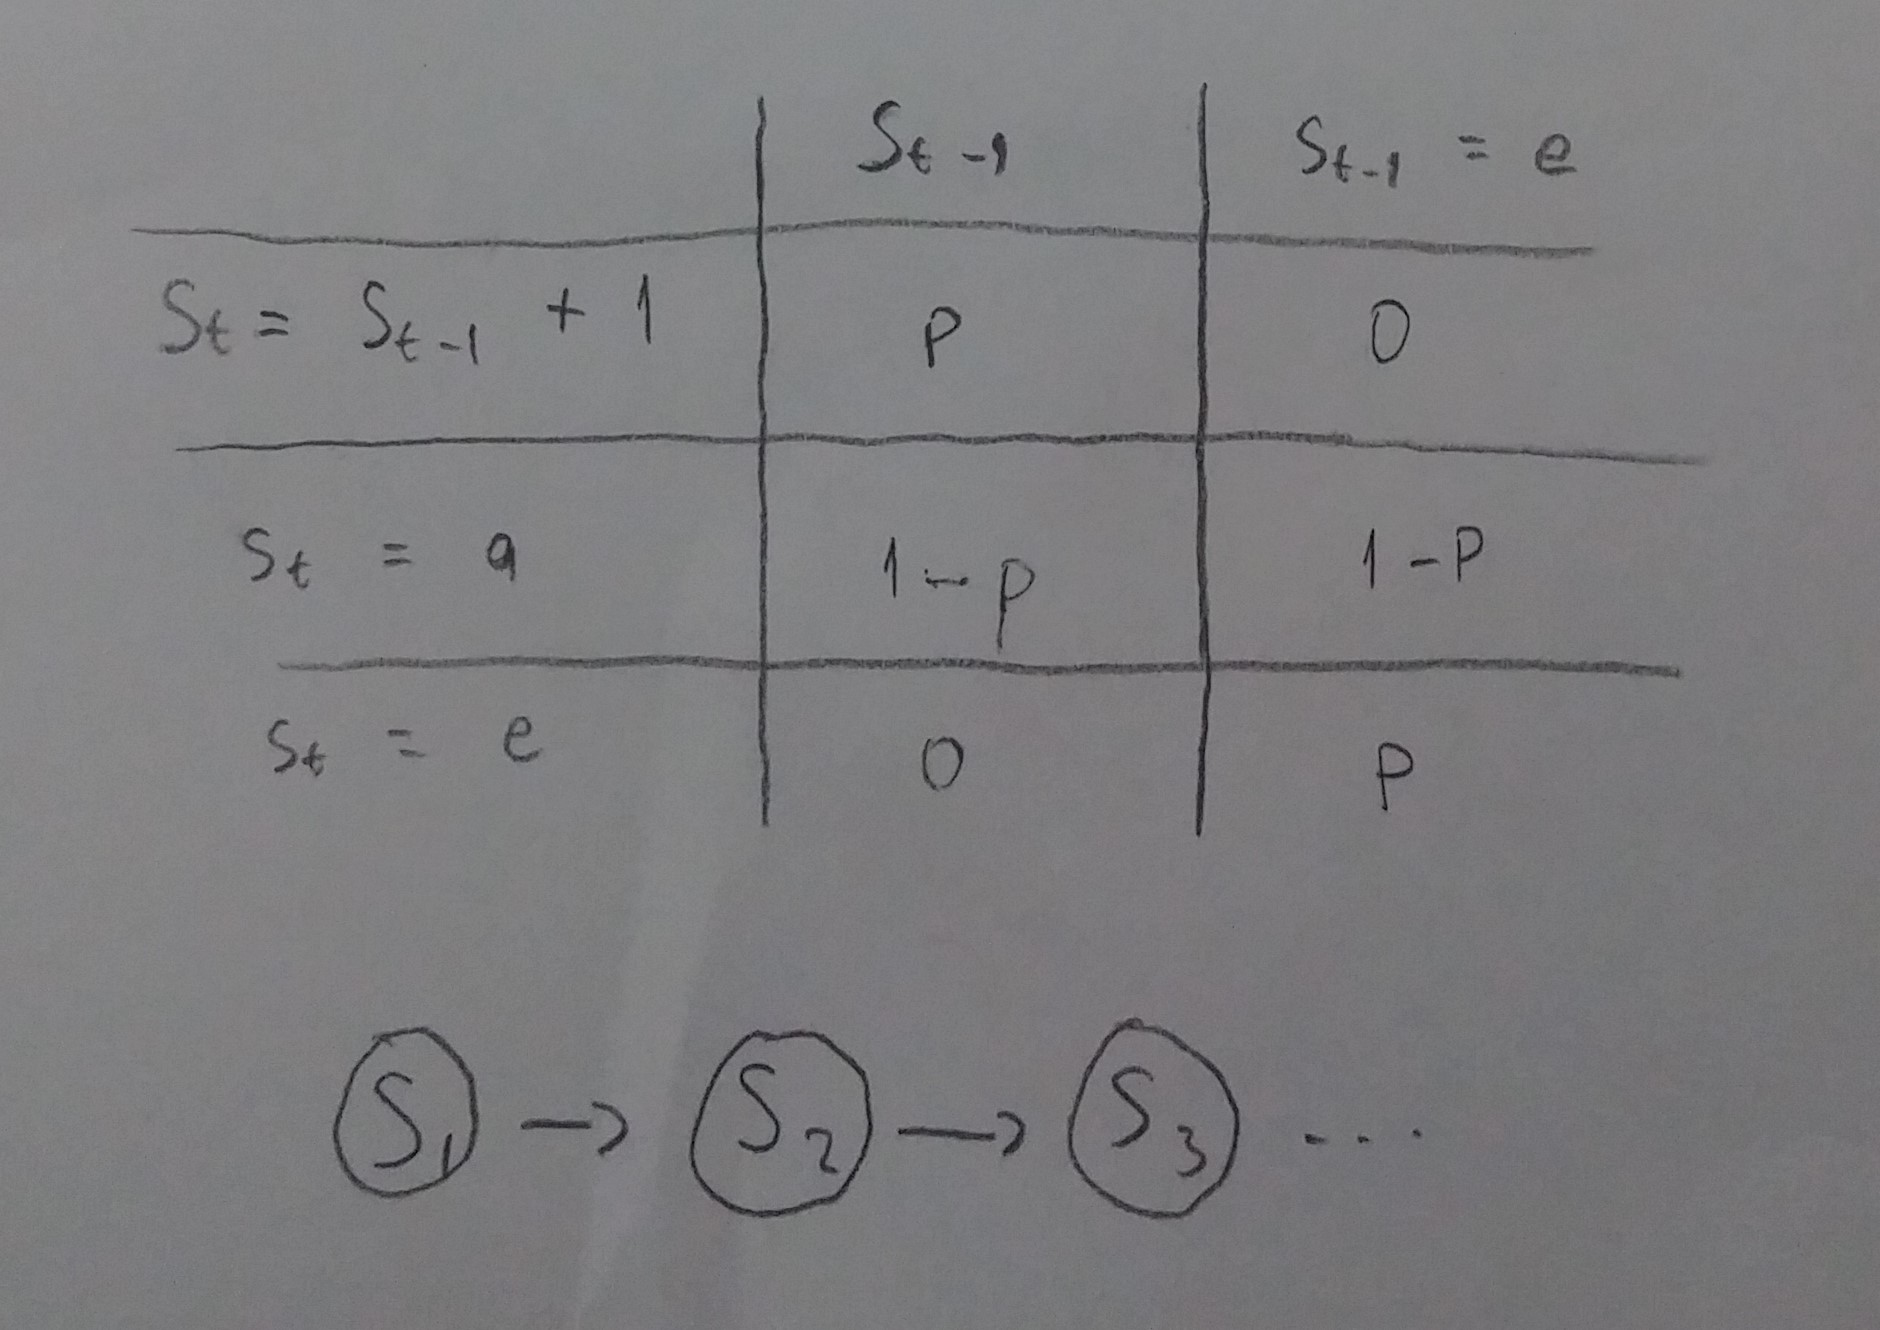 St-1 St-1 = e
St = St-1 + 1 P 0
St = a 1-p 1-P
St = e 0 P
S1 → S2 → S3 ....